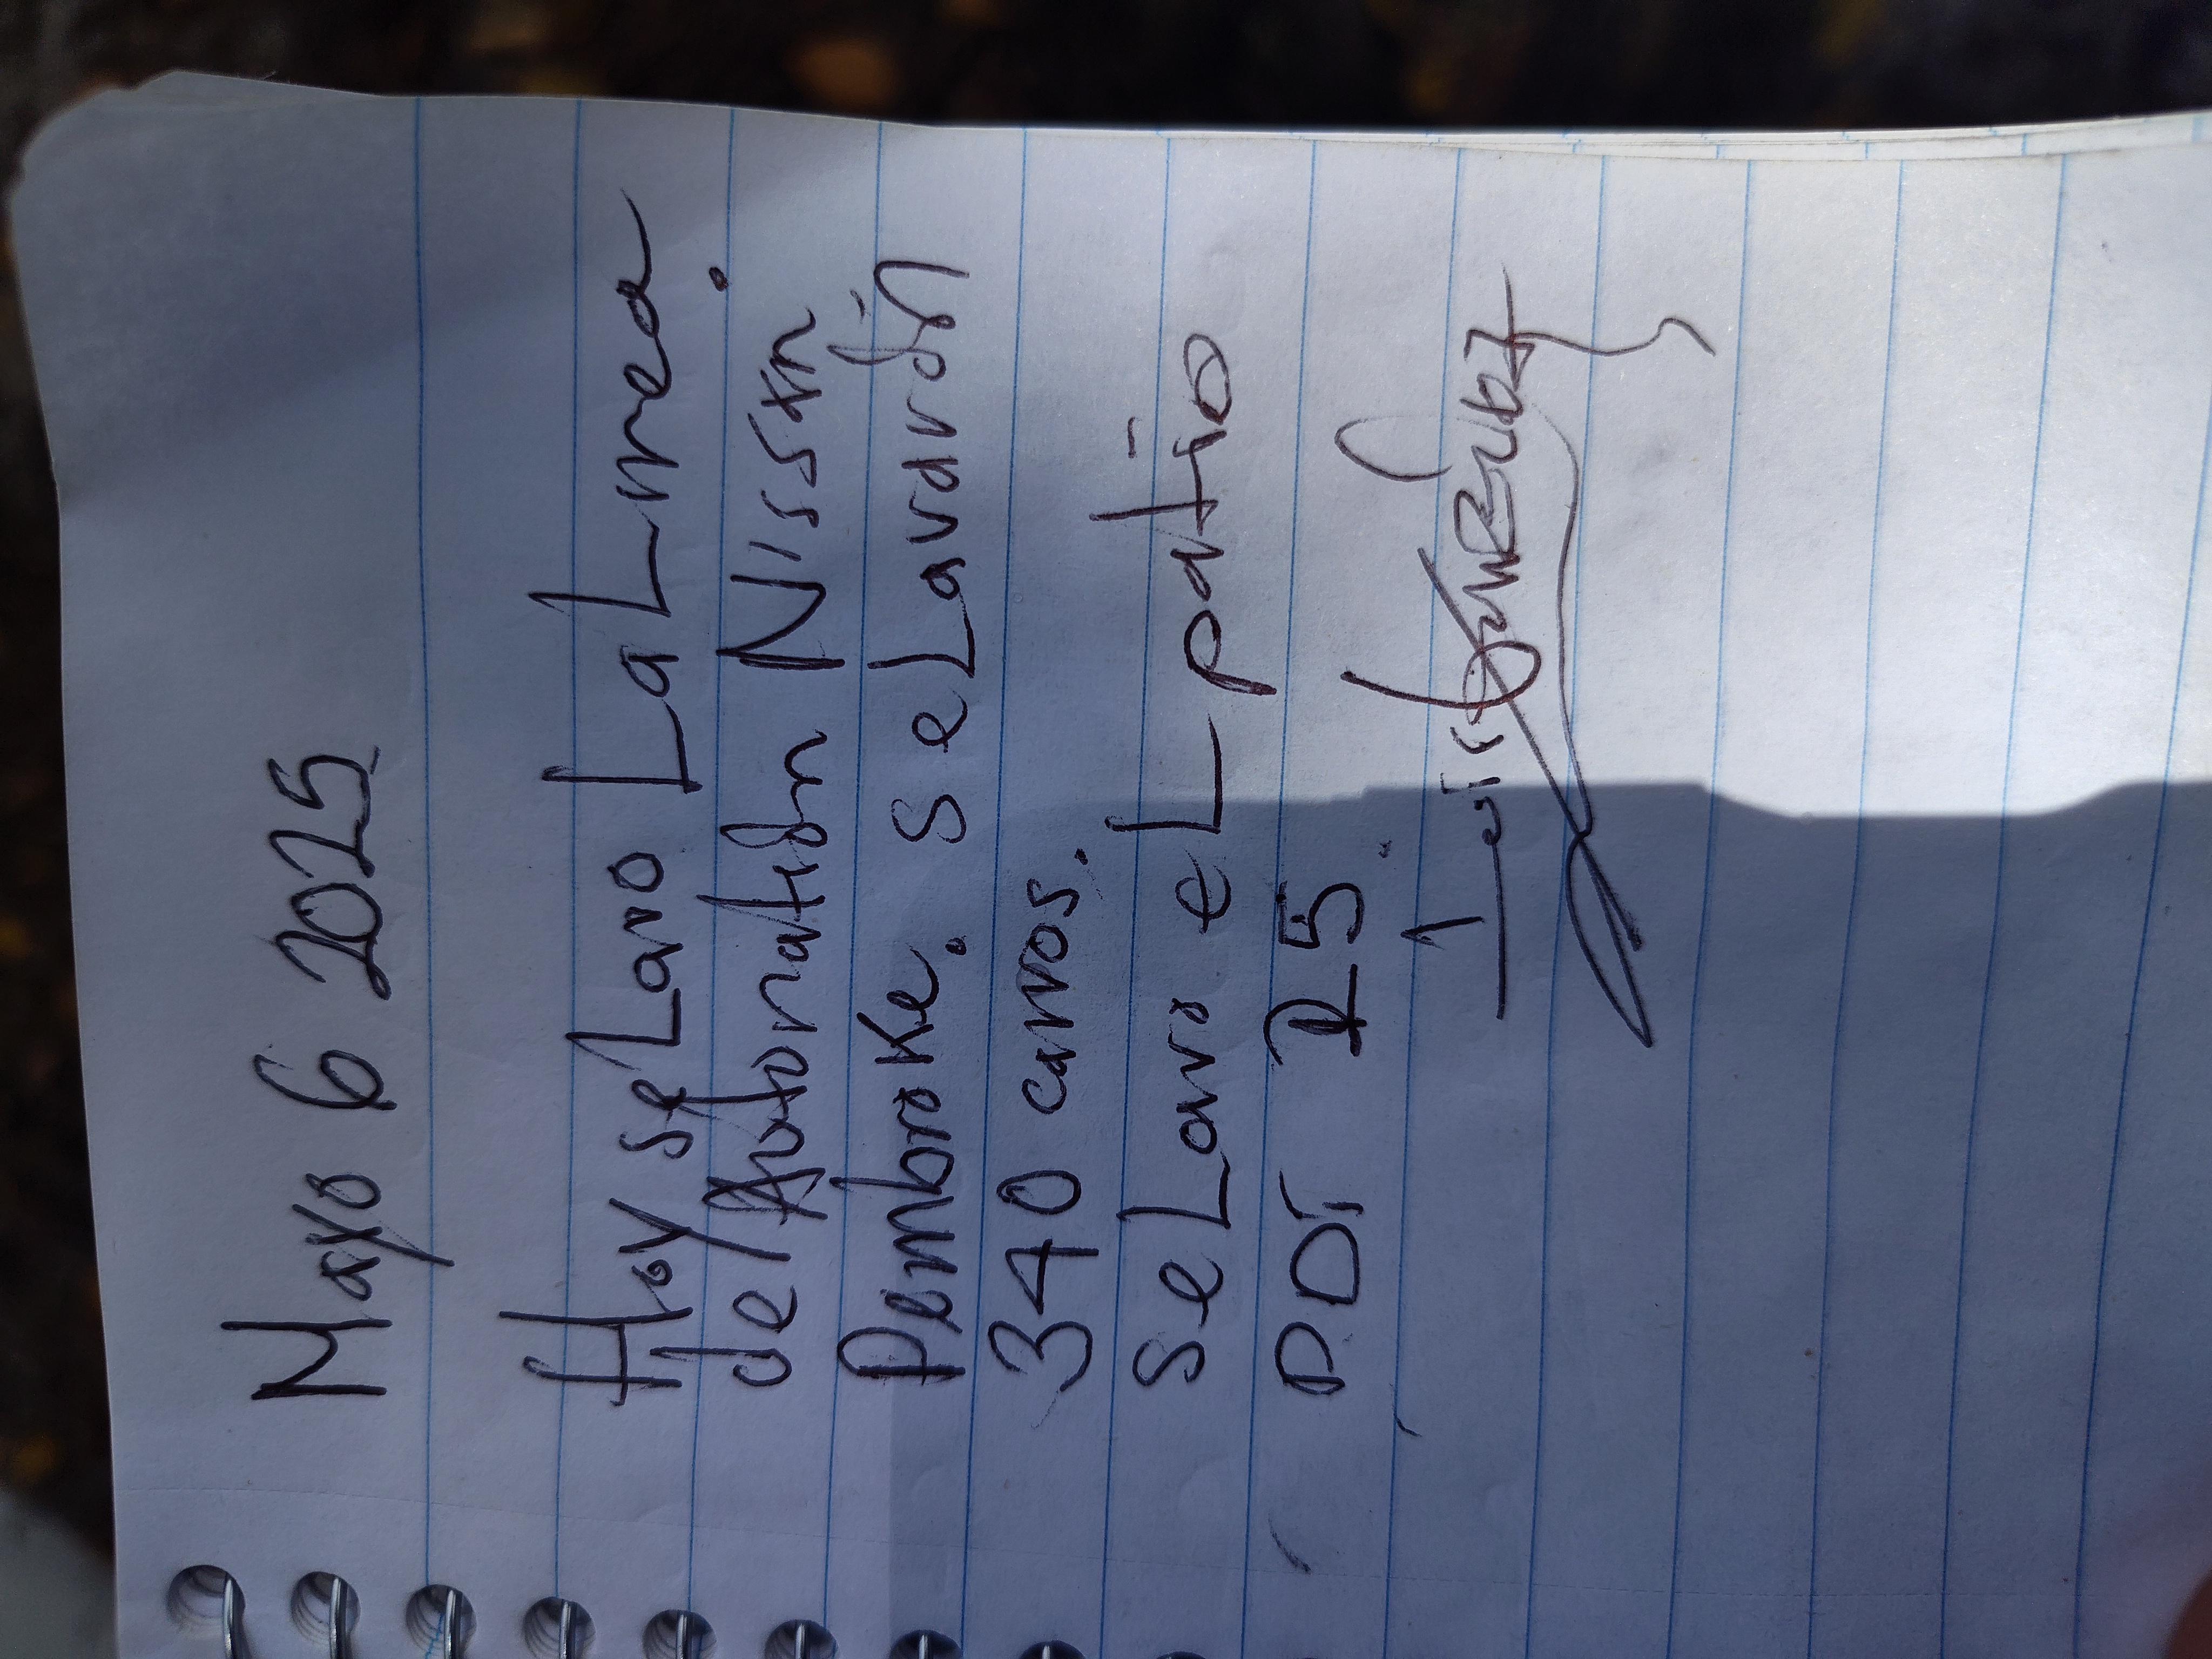 Mayo 6 2025
Hoy se Lavo La Linea
de Autonation Nissan.
Pembroke. se Lavarón
340 carros.
se Lavo eL patio
PDI 25.
Luis